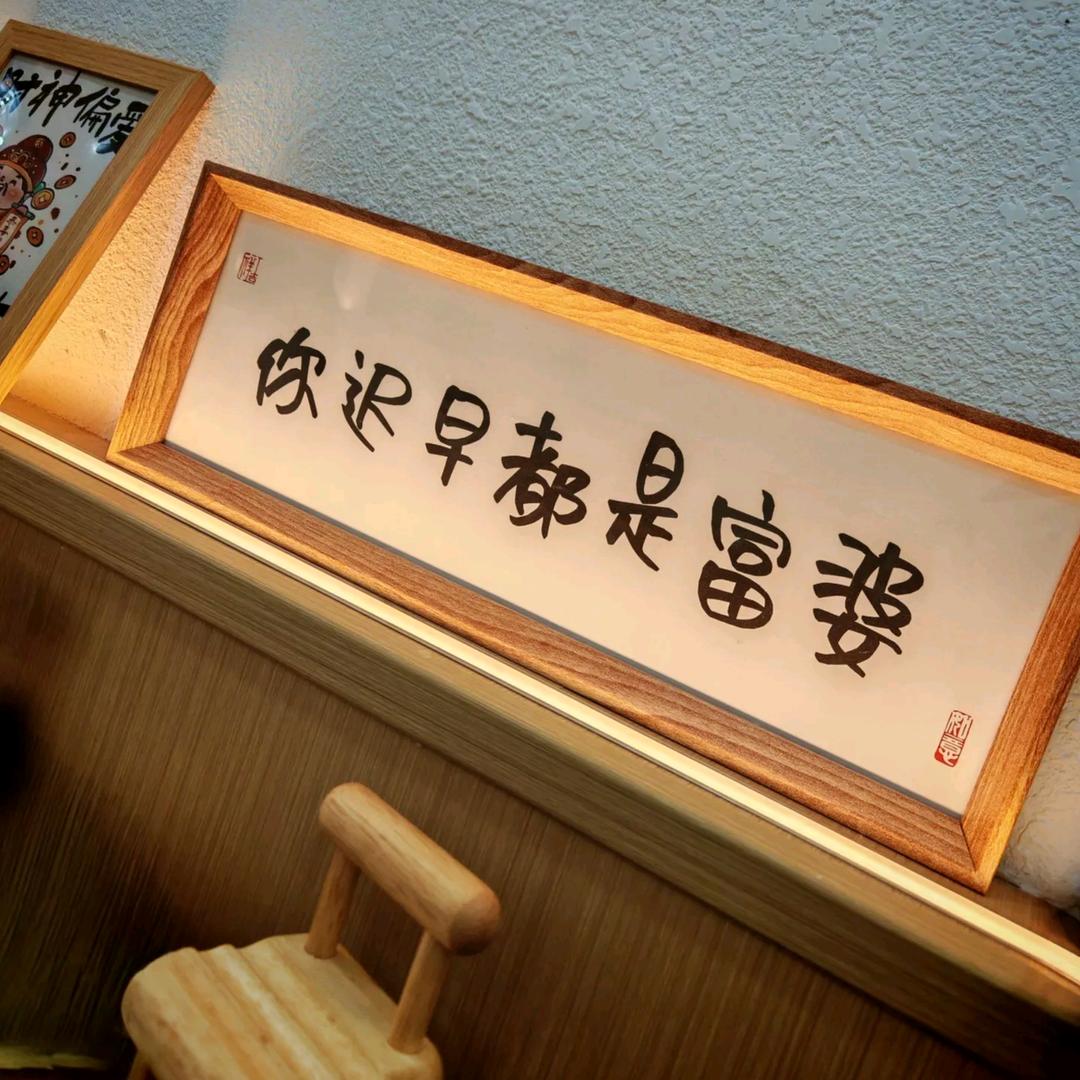 财神偏爱
你迟早都是富婆